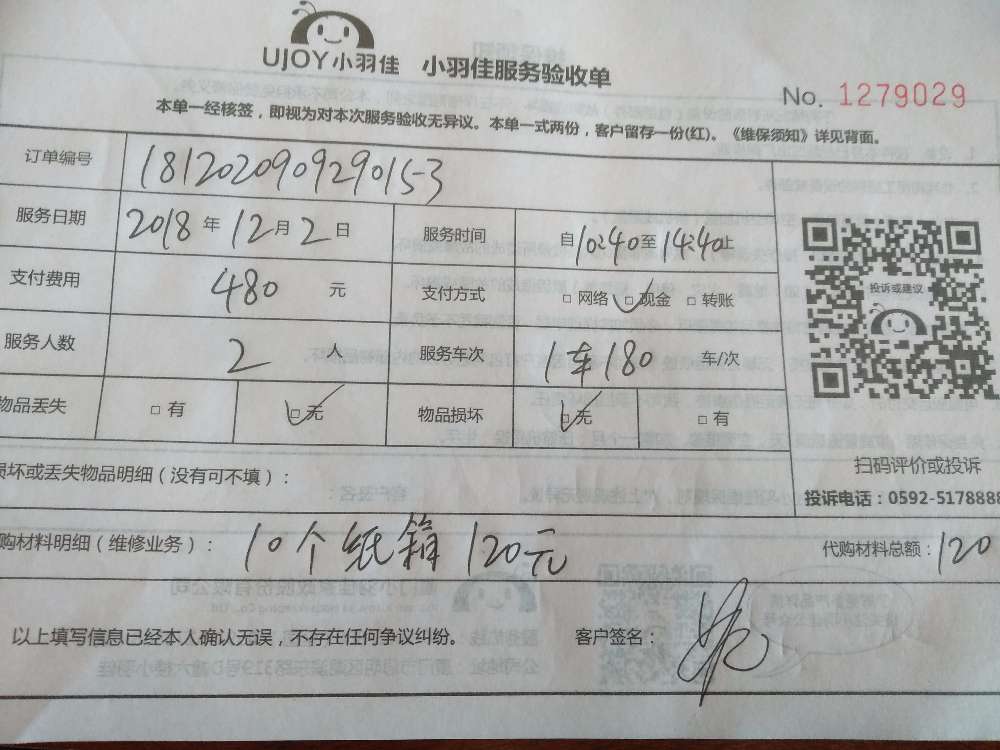 UJOY小羽佳 小羽佳服务验收单
No. 1279029
本单一经核签，即视为对本次服务验收无异议。本单一式两份，客户留存一份(红)。《维保须知》详见背面。
订单编号 1812020909290153
服务日期 2018 年 12 月 2 日 服务时间 自 10:40 至 14:40 止
支付费用 480 元 支付方式 □ 网络 □ 现金 □ 转账
投诉或建议
服务人数 2 人 服务车次 1车180 车/次
物品丢失 □ 有 □ 无 物品损坏 □ 无 □ 有
扫码评价或投诉
损坏或丢失物品明细（没有可不填）：
投诉电话：0592-5178888
购材料明细（维修业务）： 10个纸箱 120元 代购材料总额： 120
以上填写信息已经本人确认无误，不存在任何争议纠纷。 客户签名：